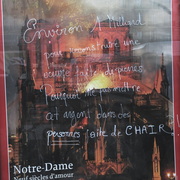 Environ 1 Milliard
pour reconstruire une
faite de pierres
Pourquoi ne pas mettre
cet argent dans des
personnes faite de CHAIR!
Notre-Dame
Neuf siècles d'amour